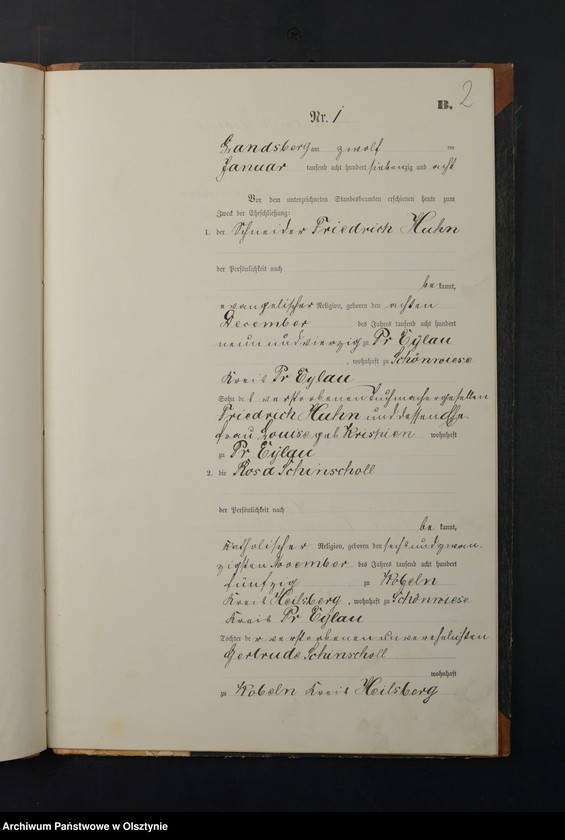 B. 2
Nr. 1
Landsberg am zwölf ten
Januar tausend acht hundert siebenzig und acht
Vor dem unterzeichneten Standesbeamten erschienen heute zum
Zweck der Eheschließung:
1. der Schneider Friedrich Huhn
der Persönlichkeit nach
be kannt,
evangelischer Religion, geboren den achten
December des Jahres tausend acht hundert
neunundvierzig zu Pr Eylau
, wohnhaft zu Schönwiese
Kreis Pr Eylau
Sohn des verstorbenen Tuchmachergesellen
Friedrich Huhn und dessen Ehe-
frau Louise geb Krispien wohnhaft
zu Pr Eylau
2. die Rosa Schinscholl
der Persönlichkeit nach
be kannt,
katholischer Religion, geboren den sechsundzwan-
zigsten November des Jahres tausend acht hundert
fünfzig zu Kobeln
Kreis Heilsberg, wohnhaft zu Schönwiese
Kreis Pr Eylau
Tochter der verstorbenen unverehelichten
Gertrude Schinscholl
wohnhaft
zu Kobeln Kreis Heilsberg
Archiwum Państwowe w Olsztynie